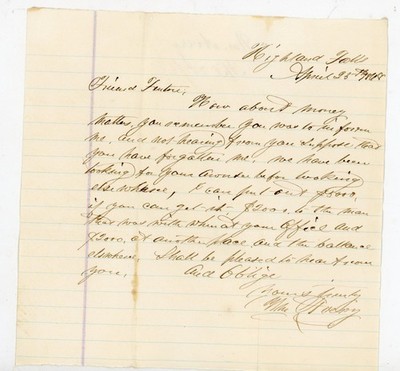 Highland Falls
April 25th
Friend
How about money
matter, you remember you was to inform
me, and not hearing from you suppose that
you have forgotten me. we have been
looking for your answer before looking
elsewhere, I can put out $5000,
if you can get it. $2000. to the man
that was with when at your office and
$2000, at another place and the balance
elsewhere. Shall be pleased to hear from
you. And Oblige
Yours truly